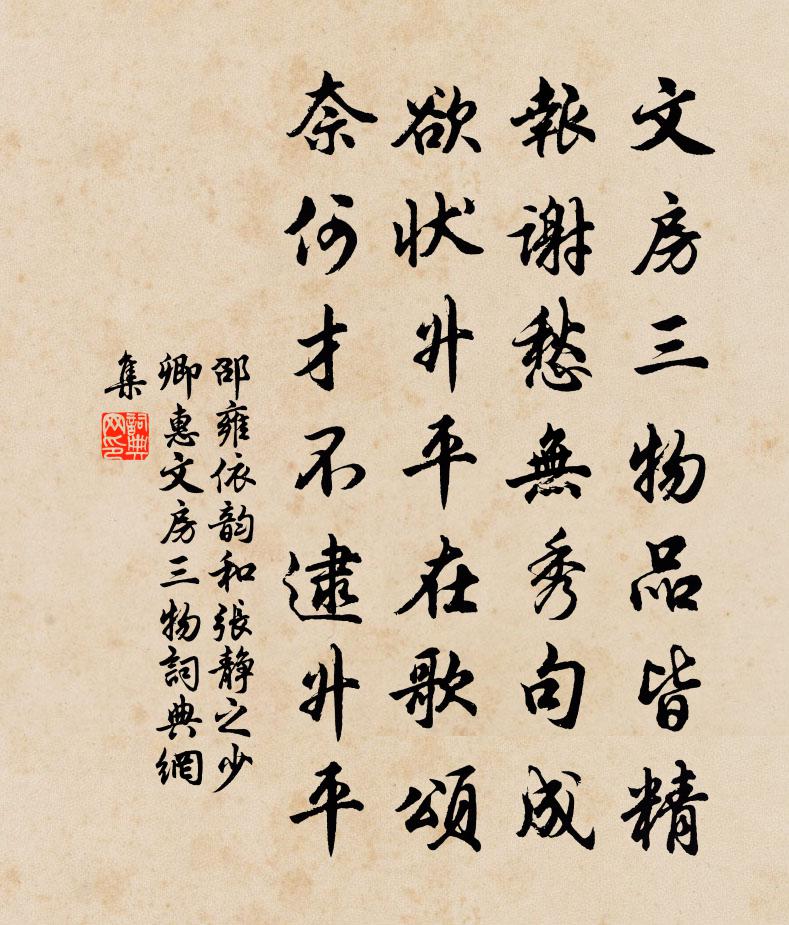 文房三物品皆精
報謝愁無秀句成
欲狀升平在歌頌
奈何才不逮升平
邵雍依韵和張靜之少
卿惠文房三物詞典網
集
詞典
网印